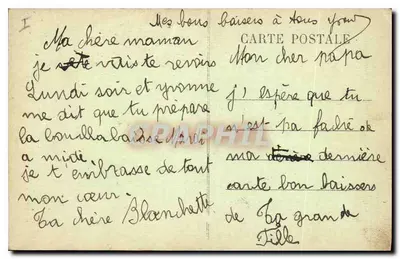 I
Mes bons baisers à tous Yvonne
CARTE POSTALE
Ma chère maman
je vaiste revoirs
Lundi soir et yvonne
me dit que tu prépare
la bouillabaisse pour
a midi
je t'embrasse de tout
mon cœur.
Ta chère Blanchette
Mon cher papa
j'éspère que tu
n'est pa faché de
ma dernière
carte bon baisers
de Ta grande
Fille